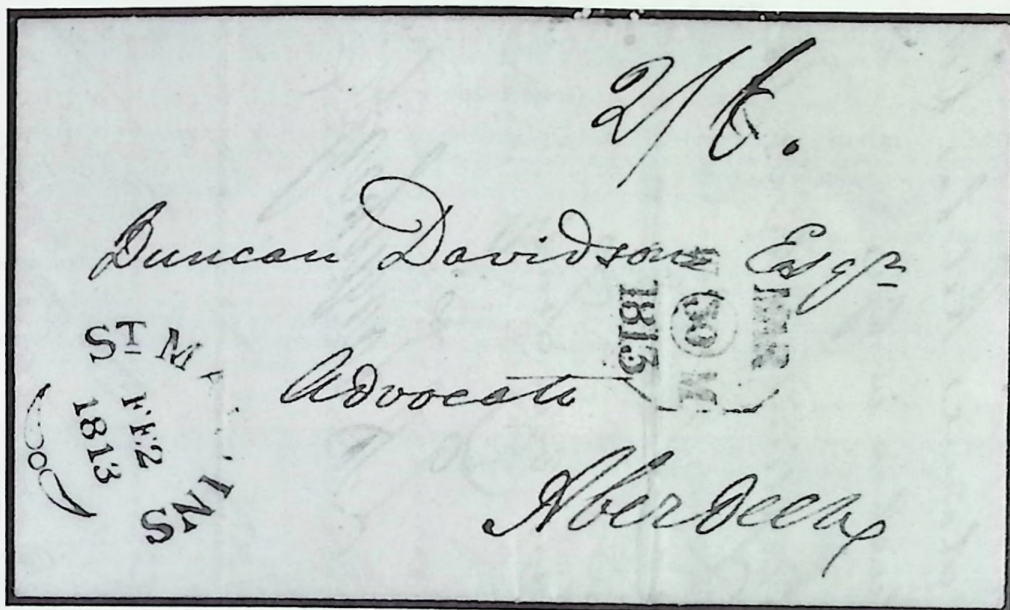 2/6.
Duncan Davidson Esqr
Advocate
Aberdeen
ST MA
INS
FE2
1813
MAR
30
1813